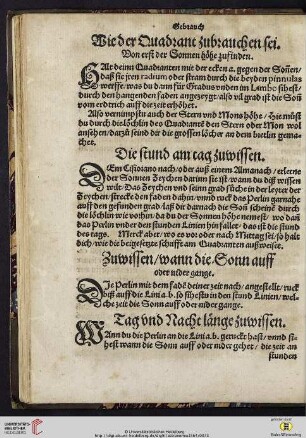 Gebrauch
Wie der Quadrant zubrauchen sei.
Von erst der Sonnen höhe zufinden.
HAlt deinn Quadranten mit der ecken a. gegen der Soñen/
daß sie jren radium oder stram durch die beyden pinnulas
werffe. was du dann für Gradus vnden im Lambo sihest/
durch den hangenden faden angezeygt/ also vil grad ist die Soñ
vom erdtrich auff die zeit erhöhet.
Also vernimb sie auch der Stern vnd Mons höhe/ Hie müst
du durch die löchlin des Quadrants den Stern oder Mon wol
ansehen/ darzů seind dir die grossen löcher an dem bietlin gemachet.
Die stund am tag zuwissen.
DEm Cisioiano nach/ oder auß einem Almanach/ erlerne
der Sonnen Zeychen darum sie ist wann du diß wissen
wilt. Das Zeychen vnd seinn grad sůche in der leyter der
Zeychen/ strecke den faden dahin vnnd ruck das Perlin garnahe
auff den gefunden grad laß dar darnach die Soñ scheinẽ durch
die löchlin wie vorhin/ da du der Sonnen höhe nemest/ wo dañ
das Perlin vnder den stunden Linien hin fallet/ das ist die stund
des tags. Merck aber wo es vor oder nach Mittag sei/ so halt
dich/ wie die beigesetzte schrifft am Quadranten außweiset.
Zuwissen/ wann die Sonn auff
oder nider gange.
DIe Perlin mit dem fadẽ deiner zeit nach/ angestelle/ ruck
biß auff die Lini a. b. so sihestu in den stund Linien/ welche
zeit die Sonn auff oder nider gange.
Tag vnd Nacht länge zuwissen.
WAnn du die Perlin an die Lini a. b. geruckt hast/ vnnd sihest
wann die Sonn auff oder nider gehet/ die zeit an
stunden
UNIVERSITÄTS-
BIBLIOTHEK
HEIDELBERG
© Universitätsbibliothek Heidelberg